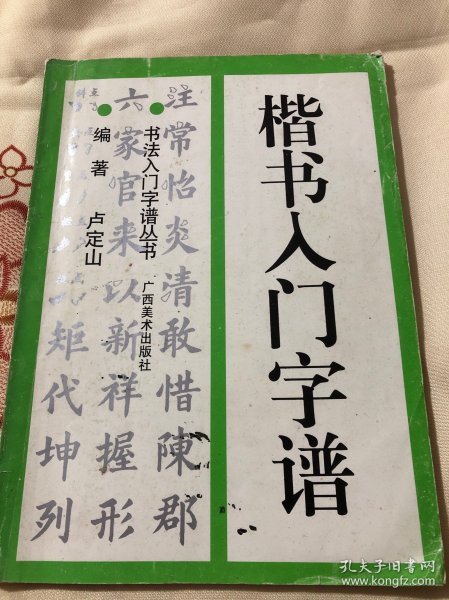 楷书入门字谱
书法入门字谱丛书
广西美术出版社
编著 卢定山
注常怡炎清敢惜陳郡
六家官来以新祥握形
矩代坤列
孔夫子旧书网
www.kongfz.com